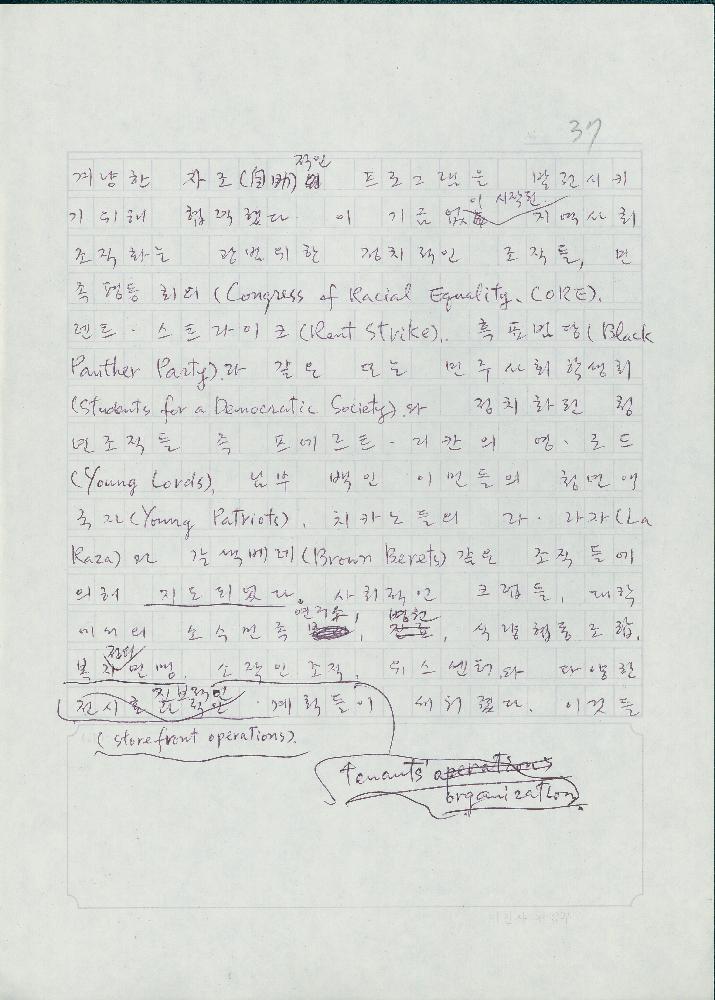 37
겨냥한 자조(自助)적인 프로그램을 발전시키
기 위해 협력했다. 이 기금 없이 시작된 지역사회
조직화는 광범위한 정치적인 조직들, 민
족평등 회의 (Congress of Racial Equality, CORE),
렌트·스트라이크(Rent Strike), 흑표범당(Black
Panther Party)과 같은 또는 민주사회학생회
(Students for a Democratic Society)와 정치화된 청
년조직들 즉 푸에르트·리칸의 영·로드
(Young Lords), 남부 백인 이민들의 청년애
국자(Young Patriots), 치카노들의 라·라자(La
Raza)와 갈색베레(Brown Berets)같은 조직들에
의해 지도되었다. 사회적인 크럽들, 대학
에서의 소수민족 연구, 병원, 식량협동조합,
복지연맹, 소작인 조직, 위스센터와 다양한
전시 진보적인 계획들이 세워졌다. 이것들
(storefront operations).
tenants' operations
organization